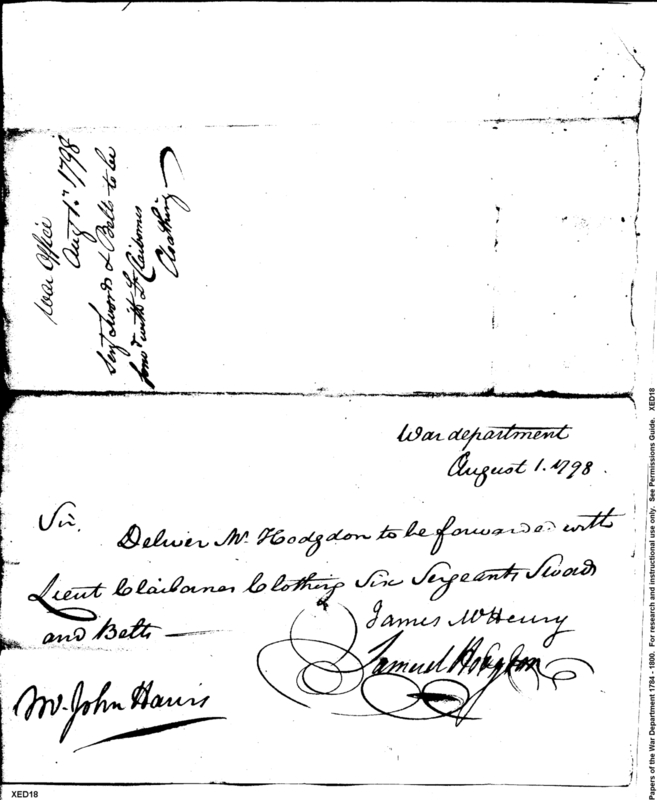 War Office
Aug 1st 1798
Serjt Swords & Belts to be
forwd with Lt Claibornes
Cloathing
War department
August 1. 1798.
Sir,
Deliver Mr. Hodgdon to be forwarded with
Lieut Claibornes Clothing Six Sergeants Swords
and Belts
James McHenry
Samuel Hodgdon
Mr. John Harris
XED18
Papers of the War Department 1784 - 1800. For research and instructional use only. See Permissions Guide. XED18